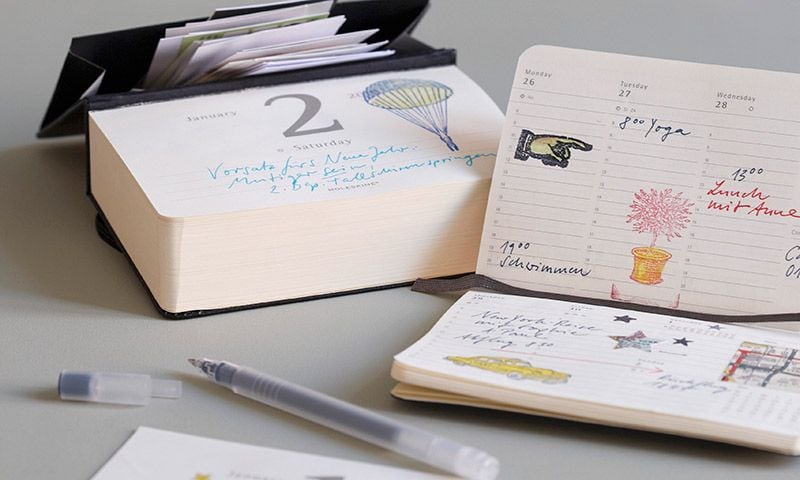 January
2
20
Saturday
Vorsatz fürs Neue Jahr:
Mutiger sein:
z. Bsp. Fallschirmspringen
MOLESKINE
Monday
26
Tuesday
27
Wednesday
28
8 00 Yoga
13 00
Lunch
mit Anne
19 00
Schwimmen
New York Reise
mit Sophie
& Paul
Abflug 8 30
January